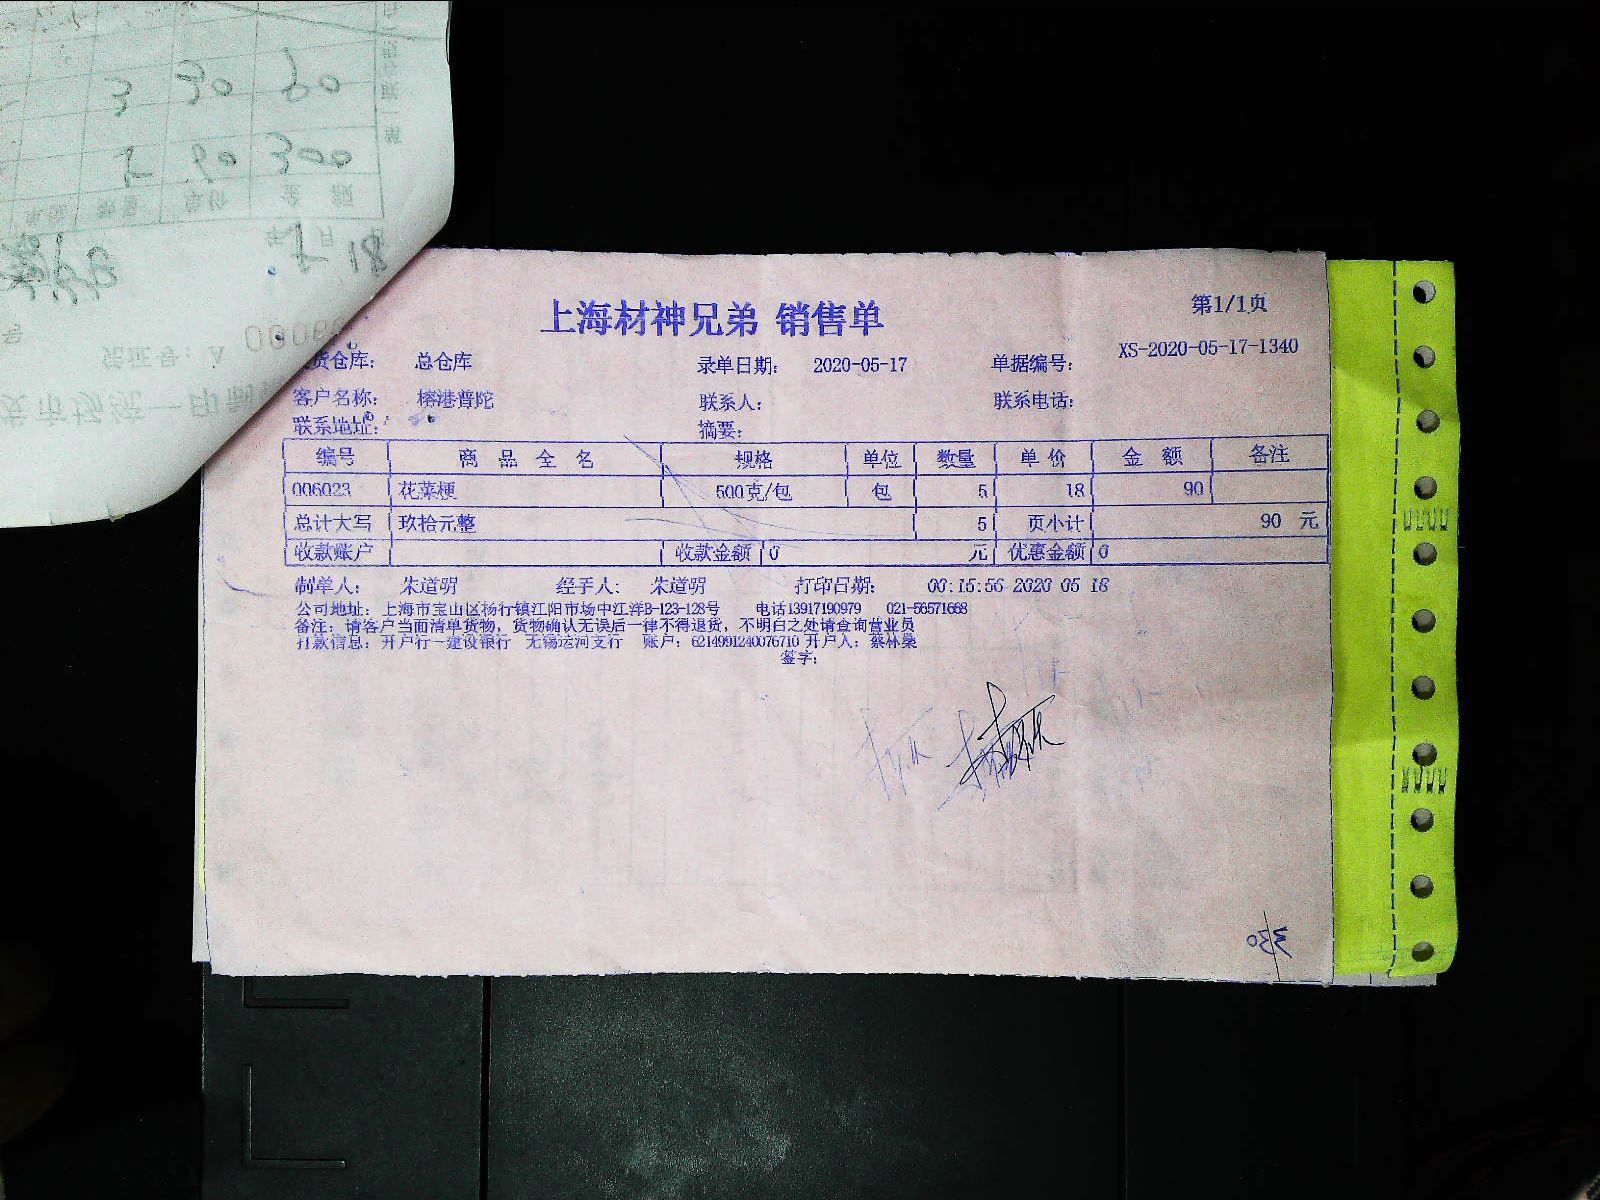 3 30 90
5 60 300
单位 数量 单价 金额
年 5 月 18
凭证号：A 0006
上海材神兄弟 销售单
第1/1页
货仓库： 总仓库 录单日期： 2020-05-17 单据编号： XS-2020-05-17-1340
客户名称： 榕港普陀 联系人： 联系电话：
联系地址： 摘要：
编号 商品全名 规格 单位 数量 单价 金额 备注
006023 花菜梗 500克/包 包 5 18 90
总计大写 玖拾元整 5 页小计 90 元
收款账户 收款金额 0 元 优惠金额 0
制单人： 朱道明 经手人： 朱道明 打印日期： 00:15:56 2020 05 18
公司地址：上海市宝山区杨行镇江阳市场中江洋B-123-128号 电话13917190979 021-56571668
备注：请客户当面清单货物，货物确认无误后一律不得退货，不明白之处请查询营业员
打款信息：开户行一建设银行 无锡运河支行 账户：6214991240076710 开户人：蔡林燊
签字：